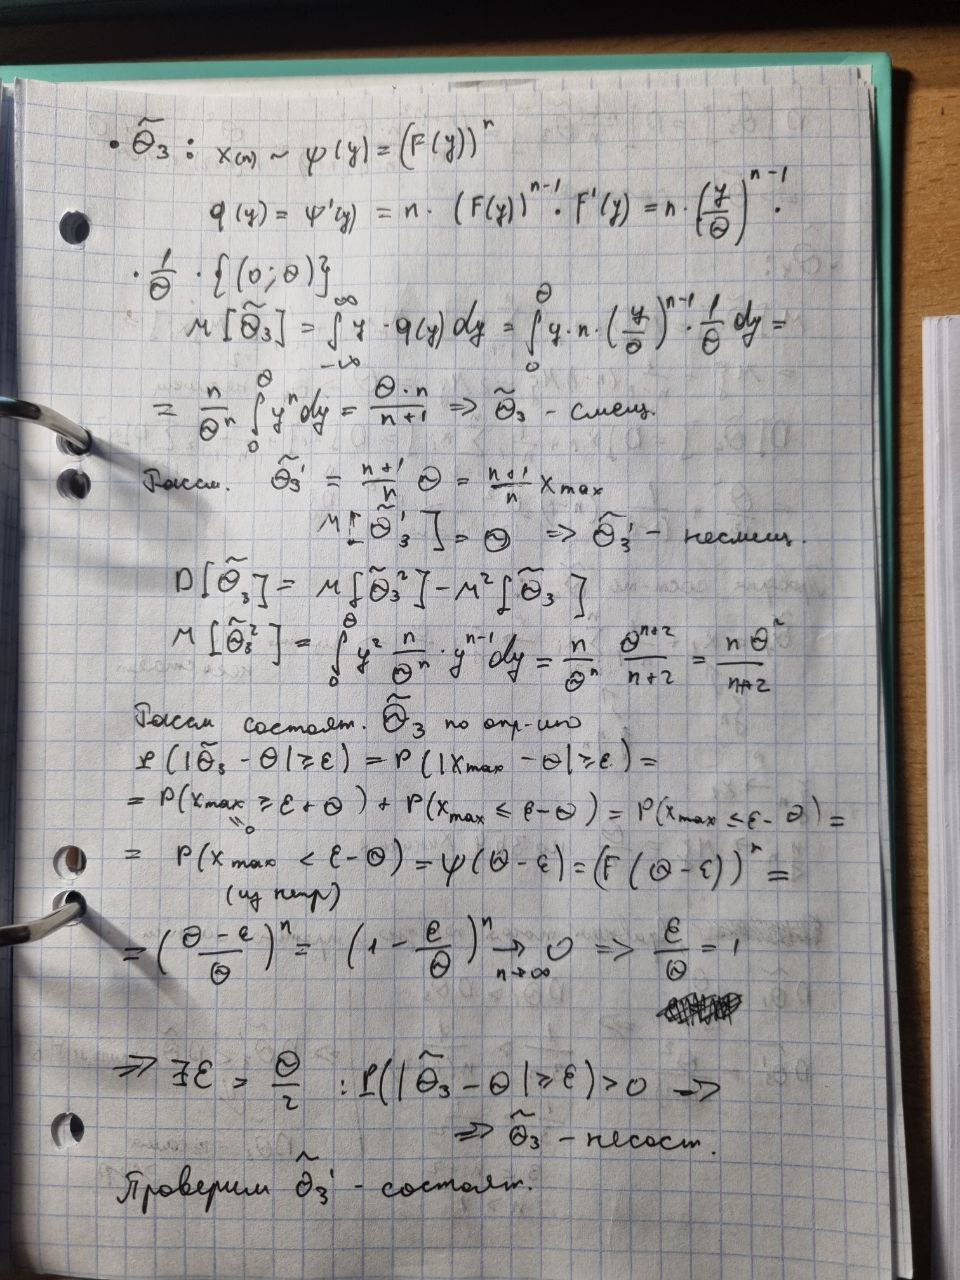 • θ̃₃ : x₍ₙ₎ ~ ψ(y) = (F(y))ⁿ
q(y) = ψ'(y) = n · (F(y))ⁿ⁻¹ · F'(y) = n · (y/θ)ⁿ⁻¹ ·
· 1/θ · {(0; θ)}
M[θ̃₃] = ∫_{-∞}^{∞} y · q(y) dy = ∫_0^θ y · n · (y/θ)ⁿ⁻¹ · 1/θ dy =
= n/θⁿ ∫_0^θ yⁿ dy = θ·n/(n+1) => θ̃₃ - смещ.
Рассм. θ̃₃' = (n+1)/n θ = (n+1)/n xmax
M[θ̃₃'] = θ => θ̃₃' - несмещ.
D[θ̃₃] = M[θ̃₃²] - M²[θ̃₃]
M[θ̃₃²] = ∫_0^θ y² n/θⁿ · yⁿ⁻¹ dy = n/θⁿ θⁿ⁺²/(n+2) = nθ²/(n+2)
Рассм состоят. θ̃₃ по опр-ию
P(|θ̃₃ - θ| ≥ ε) = P(|xmax - θ| ≥ ε) =
= P(xmax ≥ ε + θ) + P(xmax ≤ ε - θ) = P(xmax ≤ ε - θ) =
=0
= P(xmax < ε - θ) = ψ(θ - ε) = (F(θ - ε))ⁿ =
(из непр)
= ((θ - ε)/θ)ⁿ = (1 - ε/θ)ⁿ →_{n→∞} 0 => ε/θ = 1
=> ∃ε = θ/2 : P(|θ̃₃ - θ| ≥ ε) > 0 =>
=> θ̃₃ - несост.
Проверим θ̃₃' - состоят.